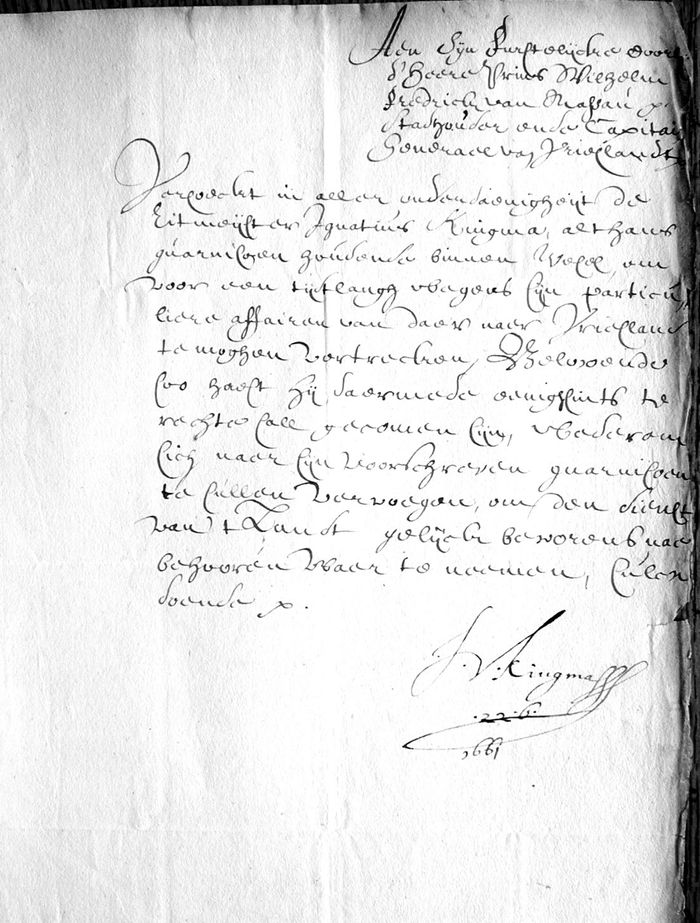 Aen Syn Furstelijcke Doorl
d'Heere Prins Wilhelm
Fredrich van Nassau
Stadhouder ende Capitai
Generael van Vrieslandt
Versoeckt in aller onderdaenigheijt de
Ritmeijster Ignatius Kingma, althans
guarnisoen houdende binnen Wesel, om
voor een tijtlangh wegens sijn particu
liere affairen van daer naer Vrieslandt
te moghen vertrecken, Gelovende
soo haest hij daermede eenighsints te
rechte sall gecomen sijn, wederom
sich naer sijn voorschreven guarnisoen
te sullen vervoegen, om den dienst
van 't Landt gelijck bevorens nae
behooren waer te neemen,
doende
J. V. Kingma
22.6.
1661